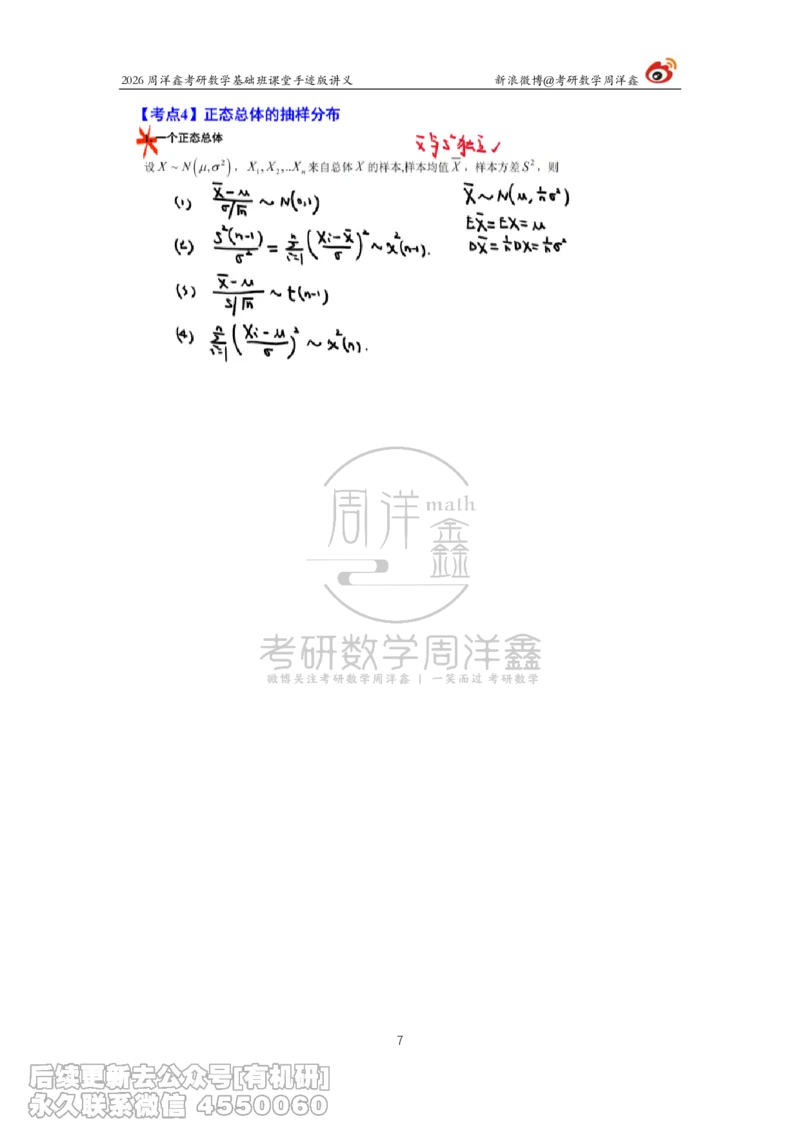 2026 周洋鑫考研数学基础班课堂手迹版讲义 新浪微博@考研数学周洋鑫
【考点4】正态总体的抽样分布
1. 一个正态总体
X̄与S²独立✓
设 X ~ N(μ,σ²)，X₁,X₂,...Xₙ 来自总体 X 的样本,样本均值 X̄，样本方差 S²，则
(1) (X̄-μ)/(σ/√n) ~ N(0,1)
X̄ ~ N(μ, 1/n σ²)
EX̄ = EX = μ
DX̄ = 1/n DX = 1/n σ²
(2) S²(n-1)/σ² = Σᵢ₌₁ⁿ ((Xᵢ-X̄)/σ)² ~ χ²(n-1).
(3) (X̄-μ)/(S/√n) ~ t(n-1)
(4) Σᵢ₌₁ⁿ ((Xᵢ-μ)/σ)² ~ χ²(n).
周洋鑫 math
考研数学周洋鑫
微博关注考研数学周洋鑫 | 一笑而过 考研数学
7
后续更新去公众号[有机研]
永久联系微信 4550060